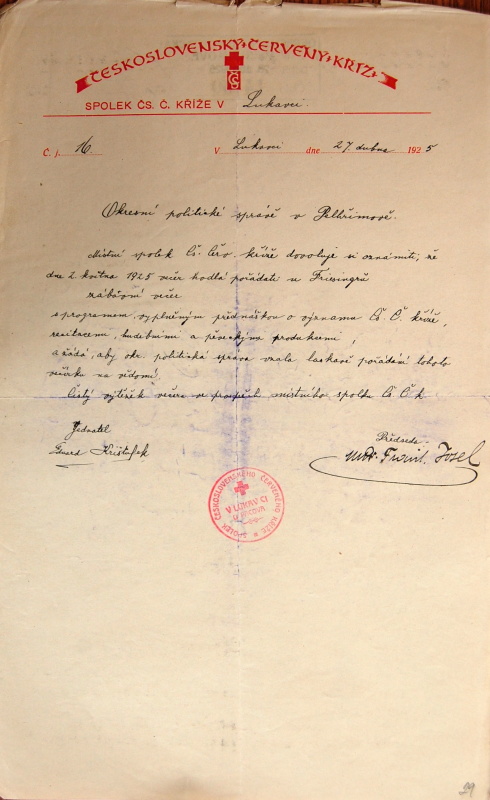 ČESKOSLOVENSKÝ ČERVENÝ KŘÍŽ
ČS
SPOLEK ČS. Č. KŘÍŽE V Lukavci.
Č. j. 16. V Lukavci dne 27 dubna 1925
Okresní politické správě v Pelhřimově.
Místní spolek Čs. Červ. kříže dovoluje si oznámiti, že
dne 2. května 1925 večer hodlá pořádati u
zábavní večer
s programem, vyplněným přednáškou o významu Čs. Č. kříže,
recitacemi, hudebními a pěveckými produkcemi,
a žádá, aby okr. politická správa vzala laskavě pořádání tohoto
večírku na vědomí.
Čistý výtěžek večera ve prospěch místního spolku Čs Č k.
Jednatel
Předseda
Krištůfek
MUDr. Josef
SPOLEK ČESKOSLOVENSKÉHO ČERVENÉHO KŘÍŽE
V LUKAVCI